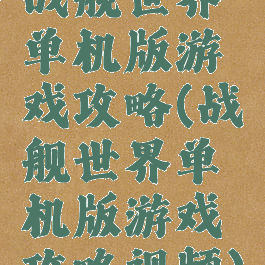 战舰世界
单机版游
戏攻略(战
舰世界单
机版游戏
攻略视频)